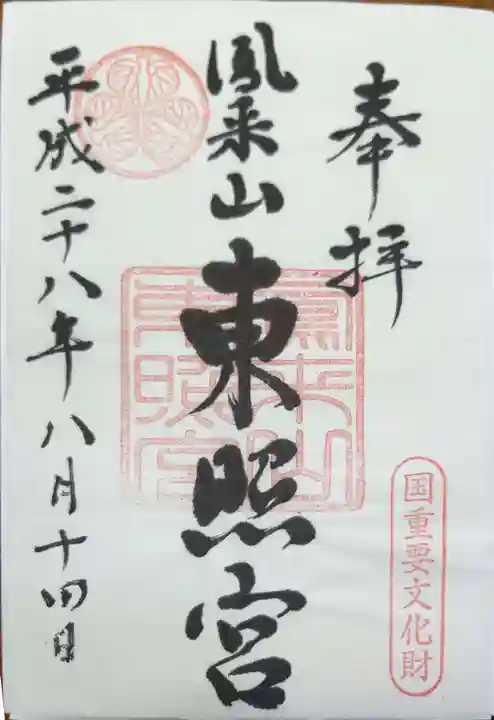 奉拝
国重要文化財
鳳来山東照宮
鳳来山東照宮
平成二十八年八月十四日